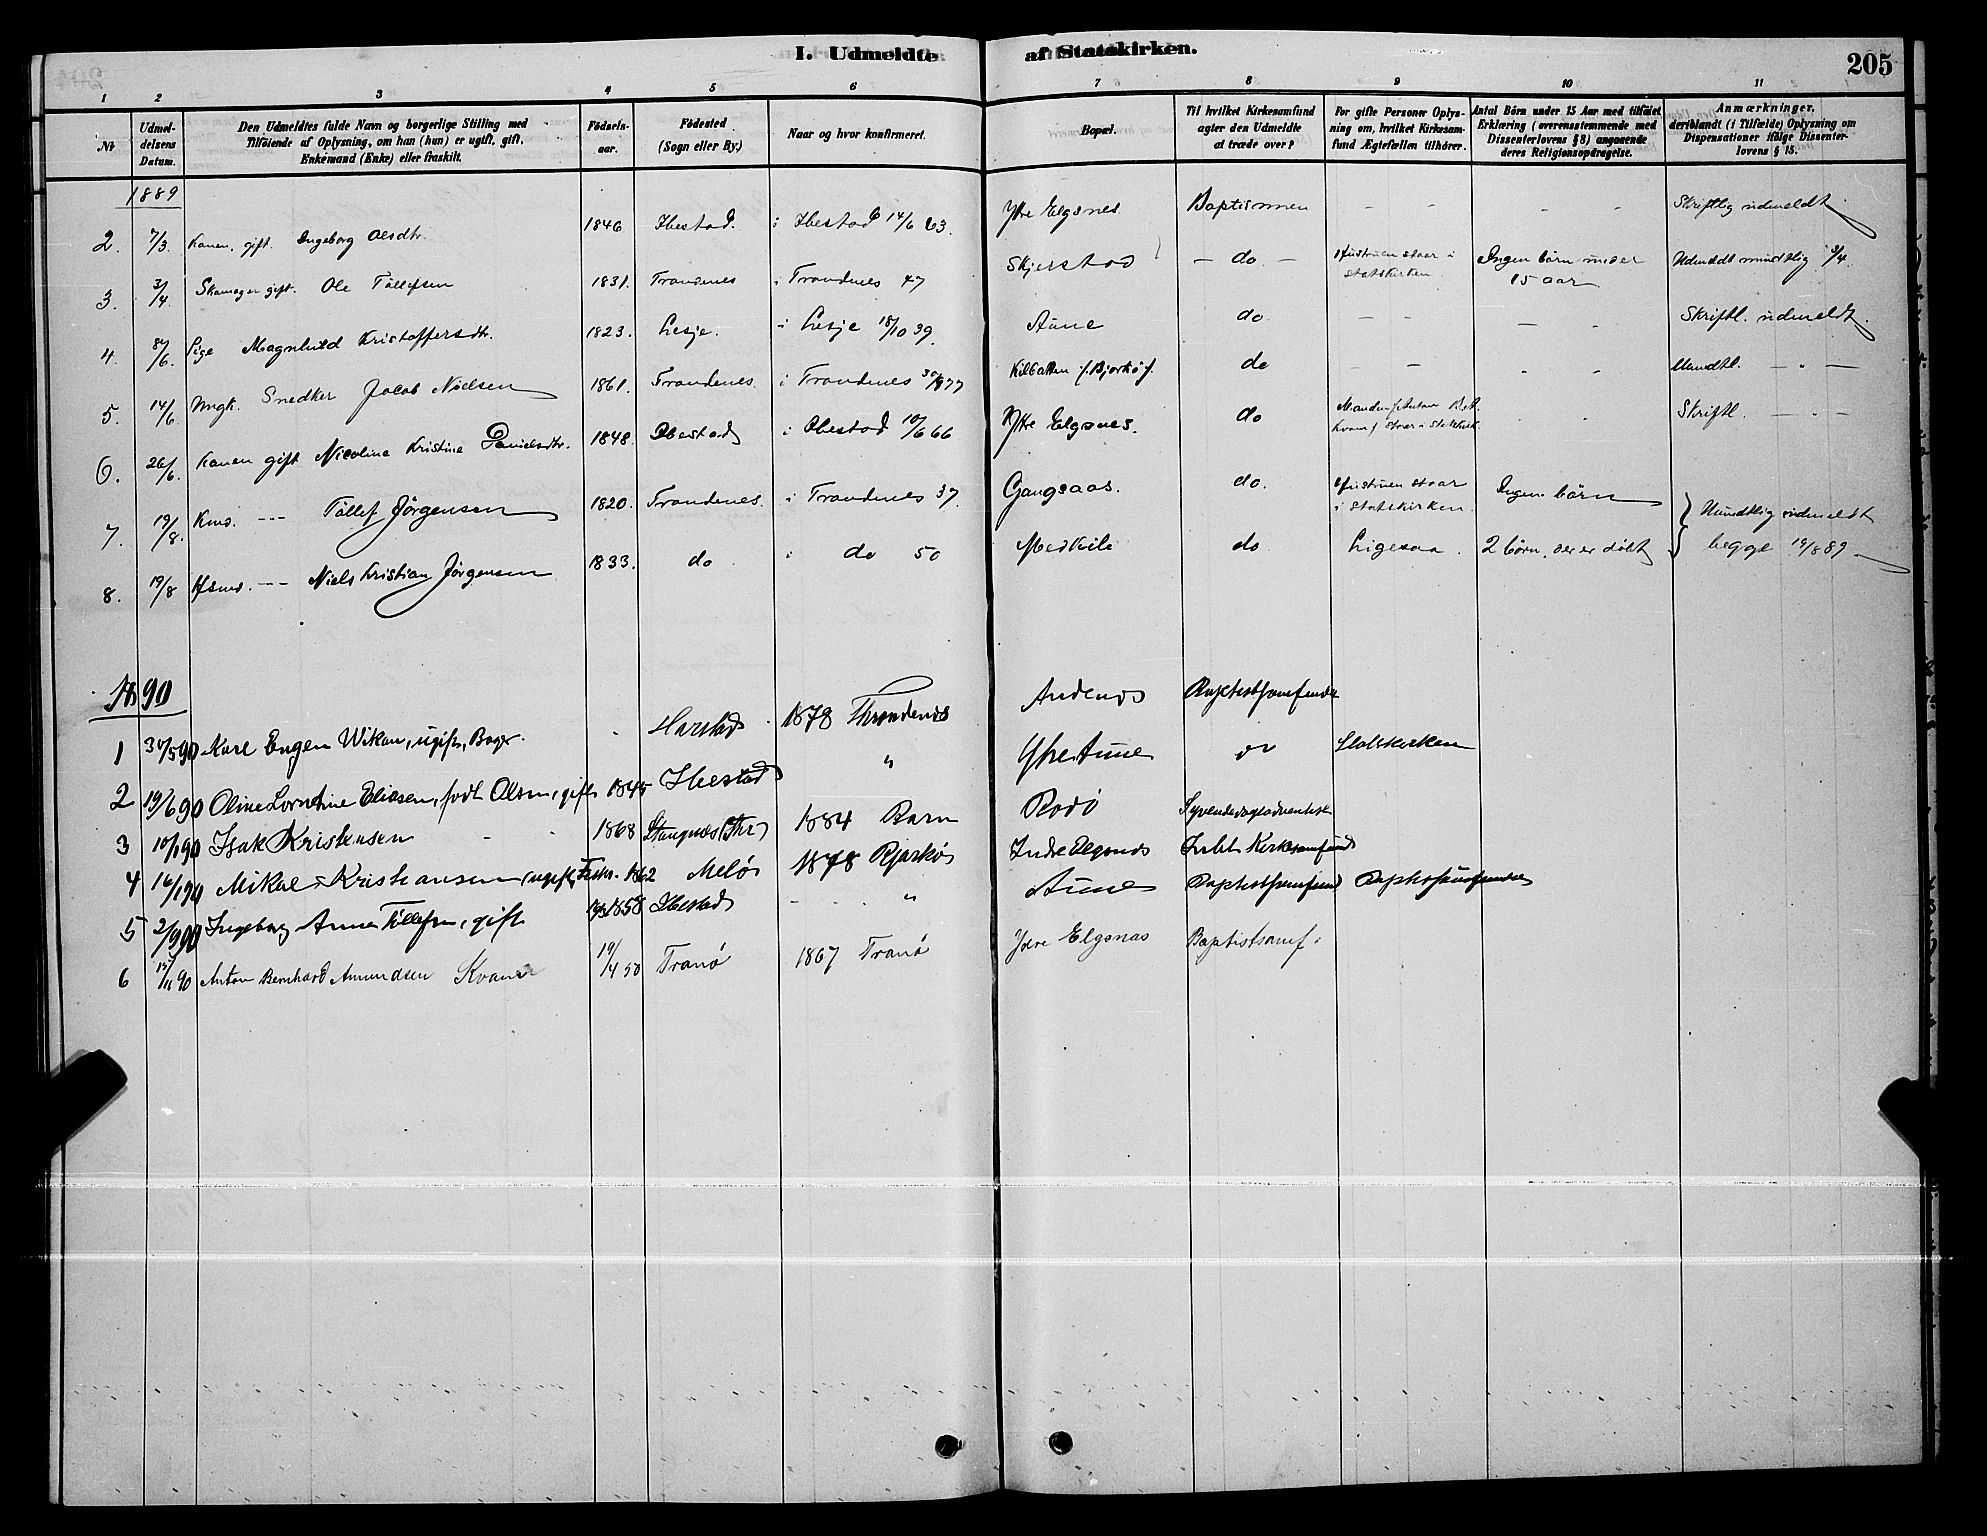 I. Udmeldte af Statskirken.
205
1 2 3 4 5 6 7 8 9 10 11
№
Udmel-
delsens
Datum.
Den Udmeldtes fulde Navn og borgerlige Stilling med
Tilføiende af Oplysning, om han (hun) er ugift, gift,
Enkemand (Enke) eller fraskilt.
Fødsels-
aar.
Fødested
(Sogn eller By.)
Naar og hvor konfirmeret.
Bopæl.
Til hvilket Kirkesamfund
agter den Udmeldte
at træde over?
For gifte Personer Oplys-
ning om, hvilket Kirkesam-
fund Ægtefællen tilhører.
Antal Börn under 15 Aar med tilföiet
Erklæring (overensstemmende med
Dissenterlovens § 8) angaaende
deres Religionsopdragelse.
Anmærkninger,
deriblandt (i Tilfælde) Oplysning om
Dispensationer ifölge Dissenter-
lovens § 15.
1889
2. 7/3. Konen, gift. Ingeborg Olsdtr. 1846 Ibestad. i Ibestad 14/6 63. Ytre Elgsnes Baptismen - - - - Skriftlig udmeldt.
3. 3/4. gift. Ole Tøllefsen 1831. Trondenes i Trondenes 47 Skjerstad - do - Hustruen staar i statskirken Ingen børn under 15 aar Udmeldt mundtlig 3/4.
4. /6. Pige Magnhild Kristoffersdtr. 1823. Lesje. i Lesje 18/10 39. Aune do. - - - - Skriftl. udmeldt.
5. 14/6. Ungk. Snedker Jacob Nielsen 1861. Trondenes. i Trondenes 77 Kilbotten /:Bjarkø:/. do - - - - Mundtl. - " -
6. 26/6. Konen gift Nicoline Kristine Danielsdtr. 1848. Ibestad i Ibestad 10/6 66 Ytre Elgsnes. do Manden /Anton B. A. Kvam/ staar i statskirk. - - Skriftl. - - -
7. 19/8. Kmd. --- Tøllef Jørgensen 1820. Trondenes. i Trondenes 37. Gangsaas. do. Hustruen staar i statskirken. Ingen børn
8. 19/8 Hsmd. --- Niels Kristian Jørgensen 1833. do i do 50 Medkile do Ligesaa. 2 børn, der er døbt } Mundtlig udmeldt begge 19/8 89.
18 90
1 3/5 90 Karl Eugen Wikan, ugift, Bager. - Harstad 1878 Throndenes Andenes Baptistsamfundet
2 19/6 90 Oline Lornetine Eliasen, født Olsen, gift 1845 Ibestad " Ytre Aune do Statskirken
3 10/1 90 Isak Kristensen - - 1868 Stangnes (Thr) 1884 Barn Rodø Syvendedagsadventist
4 16/1 90 Mikal Kristiansen, ugift, Fisker. 1862 Meløi 1878 Bjarkøi Indre Elgsnes Intet Kirkesamfund
5 2/9 90 Ingeborg Anna Tøllefsen, gift 1858 Ibestad - - " Aune Baptistsamfund Baptistsamfundet
6 15/11 90 Anton Bernhard Amundsen Kvam 19/4 50 Tranø 1867 Tranø Ydre Elgsnas Baptistsamf.